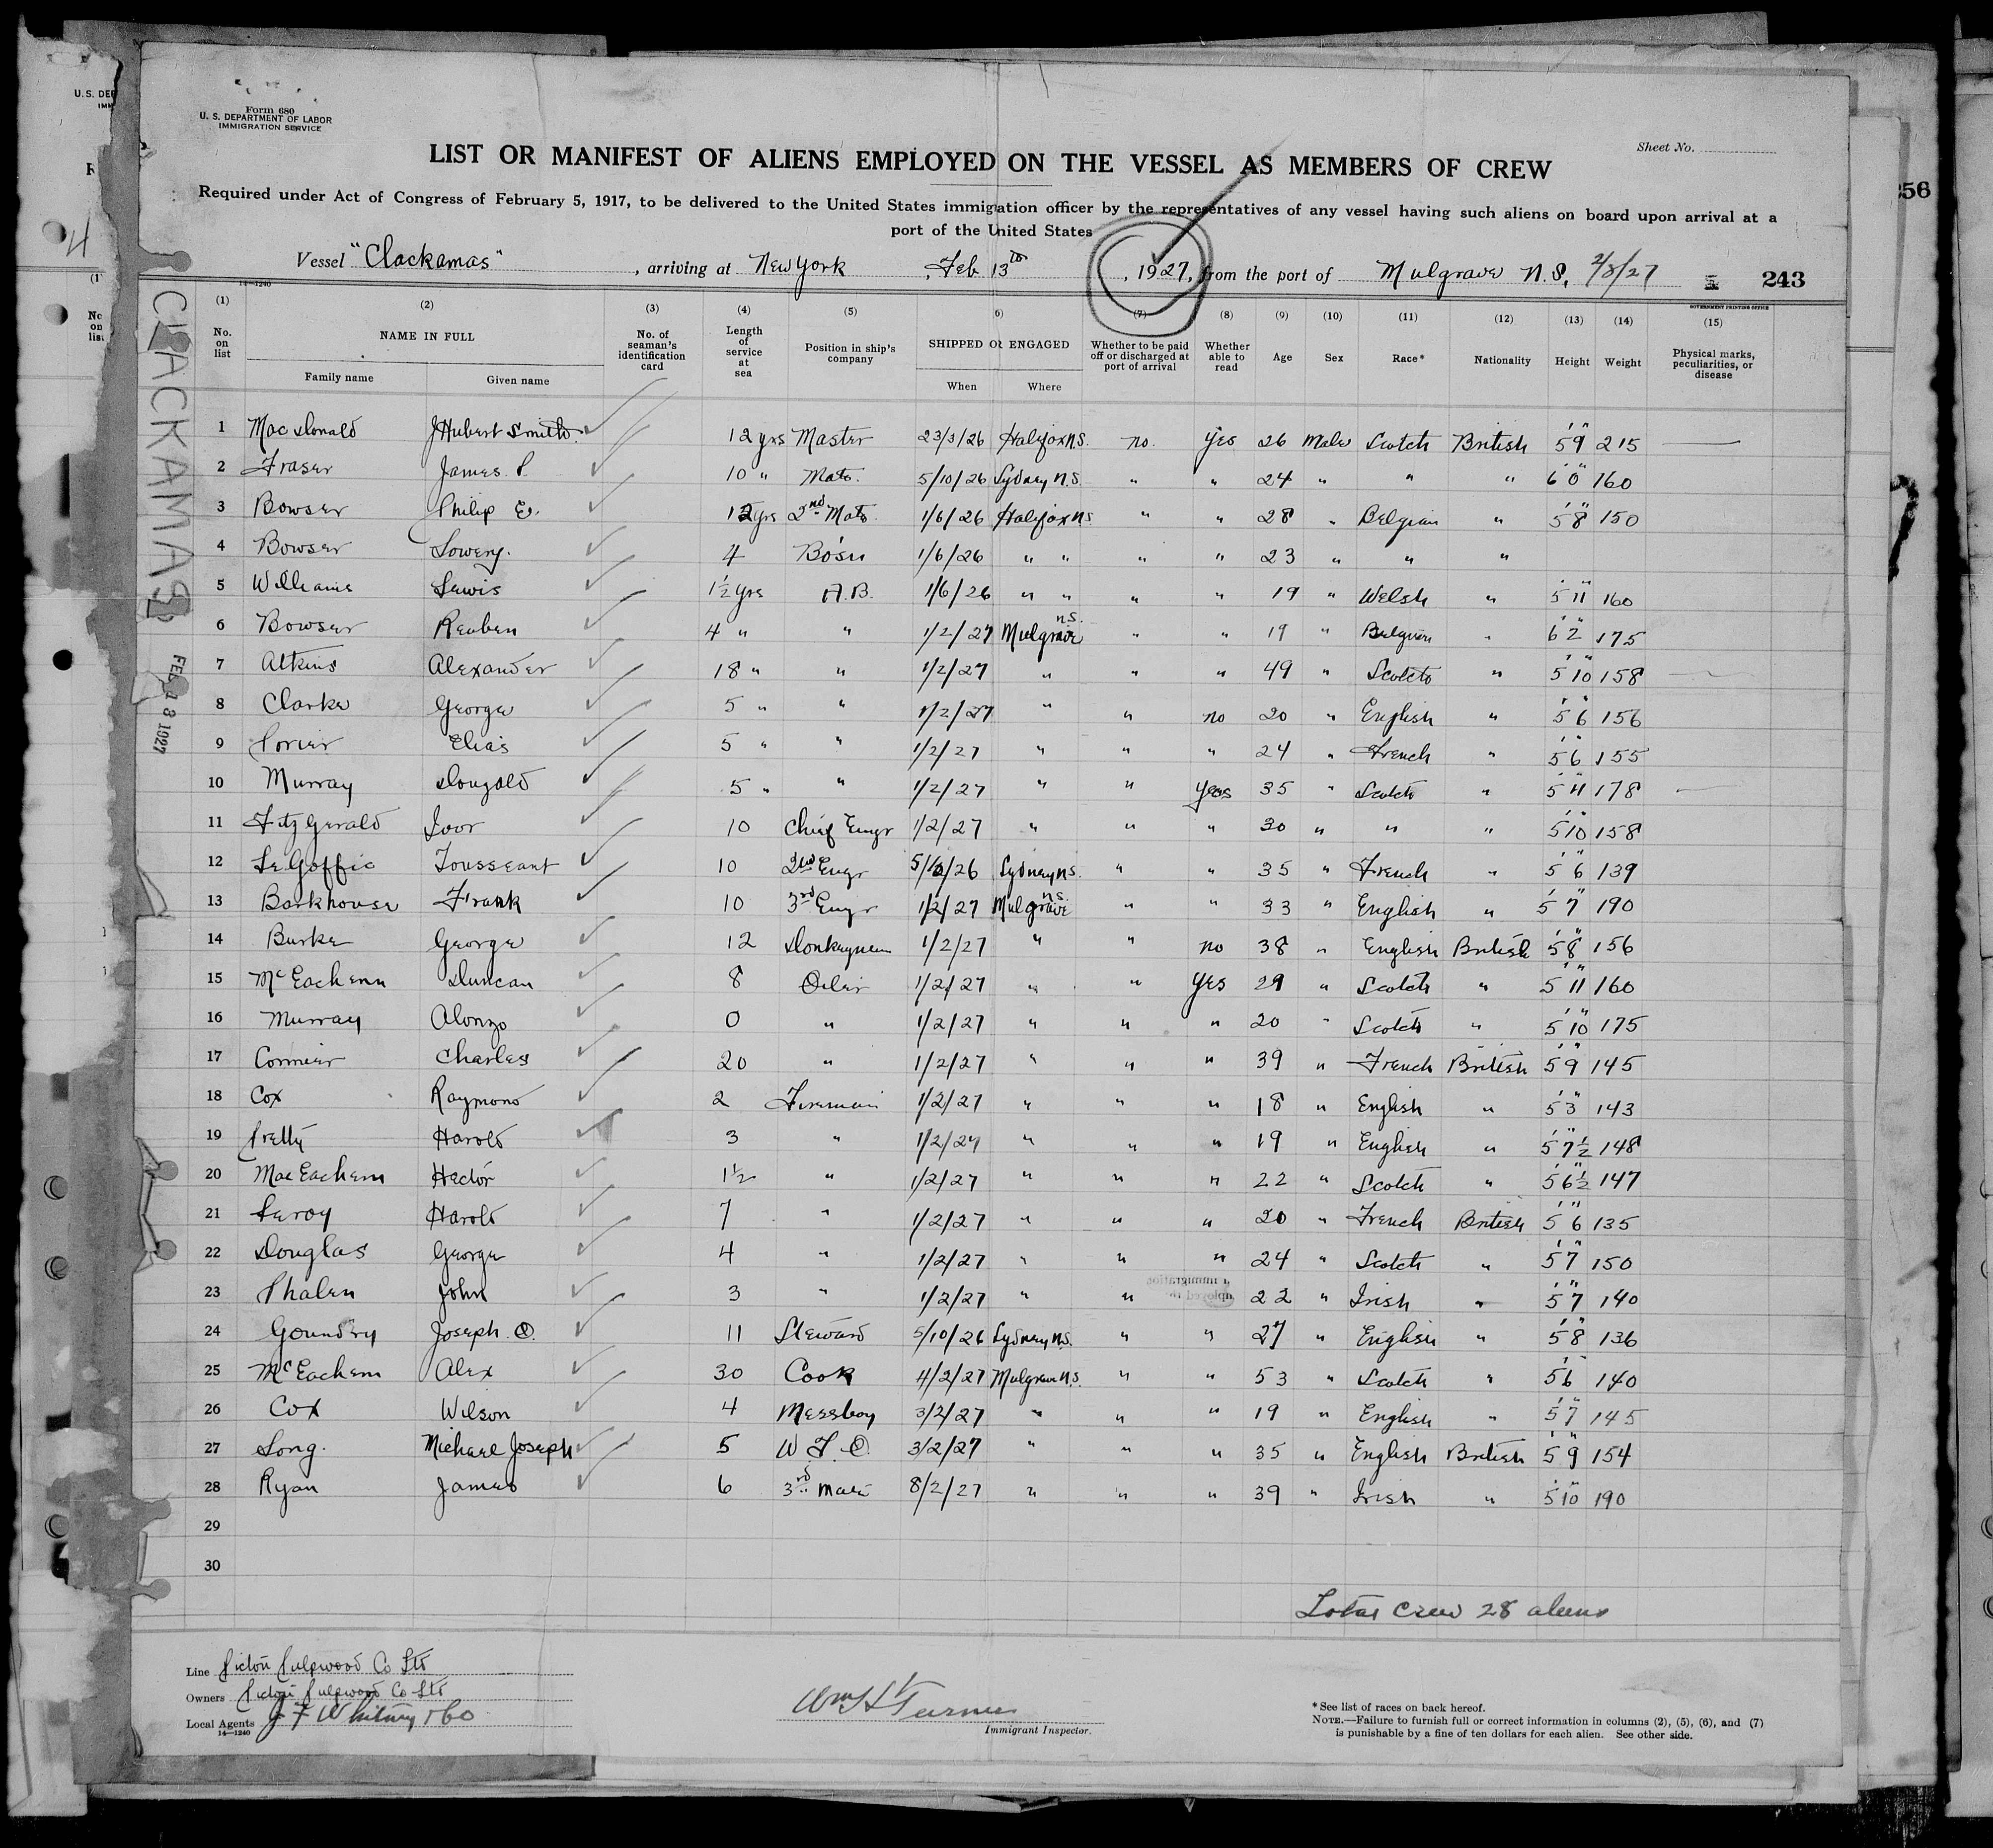 Form 680
U. S. DEPARTMENT OF LABOR
IMMIGRATION SERVICE
Sheet No.
LIST OR MANIFEST OF ALIENS EMPLOYED ON THE VESSEL AS MEMBERS OF CREW
Required under Act of Congress of February 5, 1917, to be delivered to the United States immigration officer by the representatives of any vessel having such aliens on board upon arrival at a
port of the United States
Vessel "Clackamas", arriving at New York, Feb 13th, 1927, from the port of Mulgrave N.S. 2/8/27 243
14—1240 GOVERNMENT PRINTING OFFICE
(1) No. on list
(2) NAME IN FULL Family name Given name
(3) No. of seaman's identification card
(4) Length of service at sea
(5) Position in ship's company
(6) SHIPPED OR ENGAGED When Where
(7) Whether to be paid off or discharged at port of arrival
(8) Whether able to read
(9) Age
(10) Sex
(11) Race*
(12) Nationality
(13) Height
(14) Weight
(15) Physical marks, peculiarities, or disease
1 MacDonald J Hubert Smith 12 yrs Master 23/3/26 Halifax N.S. no. yes 26 Male Scotch British 5'9" 215
2 Fraser James P. 10 " Mate 5/10/26 Sydney N.S. " " 24 " " " 6'0" 160
3 Bowser Philip E. 12 yrs 2nd Mate 1/6/26 Halifax N.S " " 28 " Belgian " 5'8" 150
4 Bowser Lowery. 4 Bo'sn 1/6/26 " " " " 23 " " "
5 Williams Lewis 1½ yrs A.B. 1/6/26 " " " " 19 " Welsh " 5'11" 160
6 Bowser Reuben 4 " " 1/2/27 Mulgrave N.S. " " 19 " Belgian " 6'2" 175
7 Atkins Alexander 18 " " 1/2/27 " " " 49 " Scotch " 5'10" 158
8 Clarke George 5 " " 1/2/27 " " no 20 " English " 5'6" 156
9 Porier Elias 5 " " 1/2/27 " " " 24 " French " 5'6" 155
10 Murray Dougald 5 " " 1/2/27 " " yes 35 " Scotch " 5'11" 178
11 FitzGerald Ivor 10 Chief Engr 1/2/27 " " " 30 " " " 5'10" 158
12 LeGoffic Tousseant 10 2nd Engr 5/10/26 Sydney N.S. " " 35 " French " 5'6" 139
13 Barkhouse Frank 10 3rd Engr 1/2/27 Mulgrave N.S. " " 33 " English " 5'7" 190
14 Burke George 12 Donkeyman 1/2/27 " " no 38 " English British 5'8" 156
15 McEachern Duncan 8 Oiler 1/2/27 " " yes 29 " Scotch " 5'11" 160
16 Murray Alonzo 0 " 1/2/27 " " " 20 " Scotch " 5'10" 175
17 Cormier Charles 20 " 1/2/27 " " " 39 " French British 5'9" 145
18 Cox Raymond 2 Fireman 1/2/27 " " " 18 " English " 5'3" 143
19 Pretty Harold 3 " 1/2/27 " " " 19 " English " 5'7½" 148
20 MacEachern Hector 1½ " 1/2/27 " " " 22 " Scotch " 5'6½" 147
21 Leroy Harold 7 " 1/2/27 " " " 20 " French British 5'6" 135
22 Douglas George 4 " 1/2/27 " " " 24 " Scotch " 5'7" 150
23 Phalen John 3 " 1/2/27 " " 22 " Irish " 5'7" 140
24 Goundry Joseph O. 11 Steward 5/10/26 Sydney N.S. " " 27 " English " 5'8" 136
25 McEachern Alex 30 Cook 4/2/27 Mulgrave N.S. " " 53 " Scotch " 5'6 140
26 Cox Wilson 4 Messboy 3/2/27 " " " 19 " English " 5'7" 145
27 Long. Michael Joseph 5 W T. O. 3/2/27 " " " 35 " English British 5'9" 154
28 Ryan James 6 3rd Mate 8/2/27 " " " 39 " Irish " 5'10" 190
29
30
Total crew 28 aliens
CLACKAMAS
FEB 13 1927
Line Pictou Pulpwood Co Ltd
Owners Pictou Pulpwood Co Ltd
Local Agents J F Whitney & Co
14—1240
Wm H Turner
Immigrant Inspector.
* See list of races on back hereof.
NOTE.—Failure to furnish full or correct information in columns (2), (5), (6), and (7)
is punishable by a fine of ten dollars for each alien. See other side.
U.S. DEP
IMM
4
256